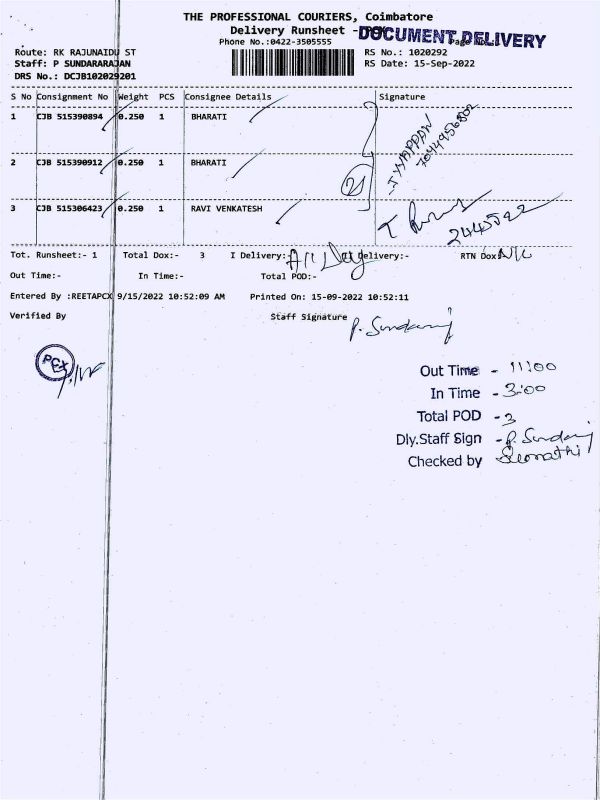 THE PROFESSIONAL COURIERS, Coimbatore
Delivery Runsheet - DOCUMENT DELIVERY
Phone No.:0422-3505555
Route: RK RAJUNAIDU ST
RS No.: 1020292
Staff: P SUNDARARAJAN
RS Date: 15-Sep-2022
DRS No.: DCJB102029201
S No Consignment No Weight PCS Consignee Details Signature
1 CJB 515390894 0.250 1 BHARATI
IYYAPPAN
2 CJB 515390912 0.250 1 BHARATI
21
3 CJB 515306423 0.250 1 RAVI VENKATESH
Tot. Runsheet:- 1 Total Dox:- 3 I Delivery: All Dely II Delivery:- RTN Dox: NIL
Out Time:- In Time:- Total POD:-
Entered By :REETAPCX 9/15/2022 10:52:09 AM Printed On: 15-09-2022 10:52:11
Verified By Staff Signature P. Sundararaj
PCX
Out Time - 11:00
In Time - 3:00
Total POD - 3
Dly.Staff Sign - P. Sundararaj
Checked by